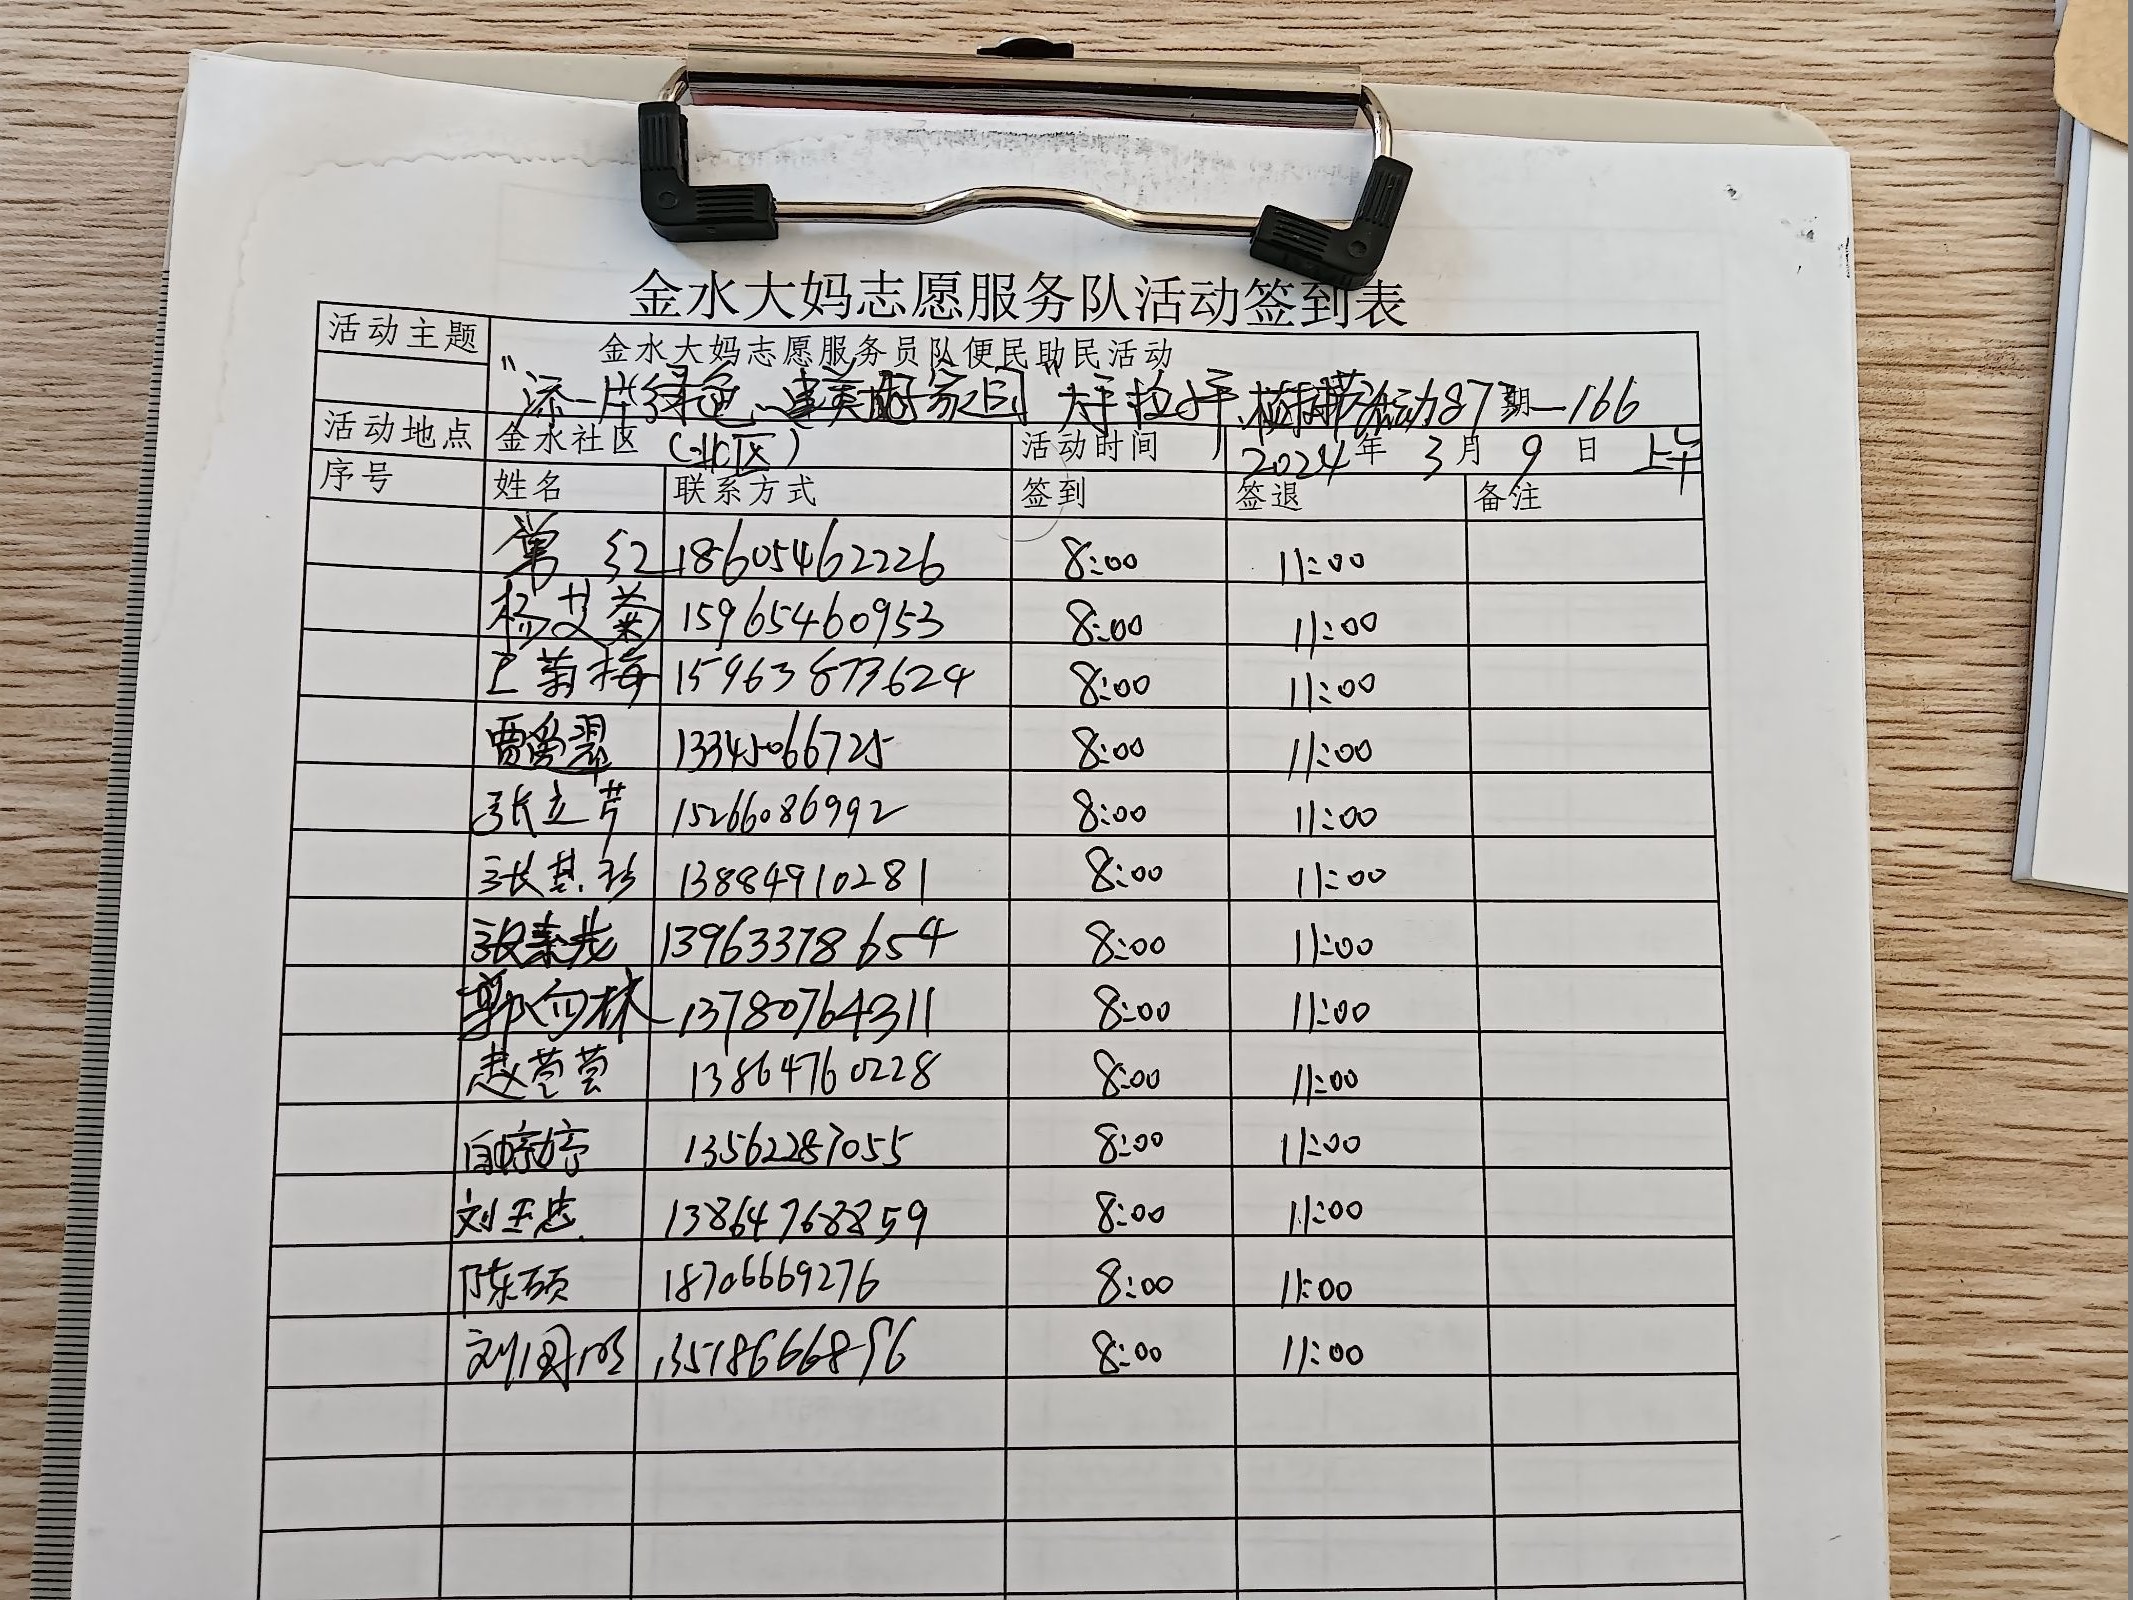 金水大妈志愿服务队活动签到表
活动主题 金水大妈志愿服务员队便民助民活动
“添一片绿色、建美好家园”大手拉小手、植树节活动87期—166
活动地点 金水社区 (北区) 活动时间 2024年 3月 9日 上午
序号 姓名 联系方式 签到 签退 备注
红 18605462226 8:00 11:00
杨艾菊 15965460953 8:00 11:00
王菊梅 15963873624 8:00 11:00
贾 翠 13345066725 8:00 11:00
张立芹 15266086992 8:00 11:00
张其 13884910281 8:00 11:00
张 13963378654 8:00 11:00
郭向林 13780764311 8:00 11:00
赵 13864760228 8:00 11:00
白婷婷 13562287055 8:00 11:00
刘玉忠 13864768859 8:00 11:00
陈硕 18706669276 8:00 11:00
刘国明 8:00 11:00